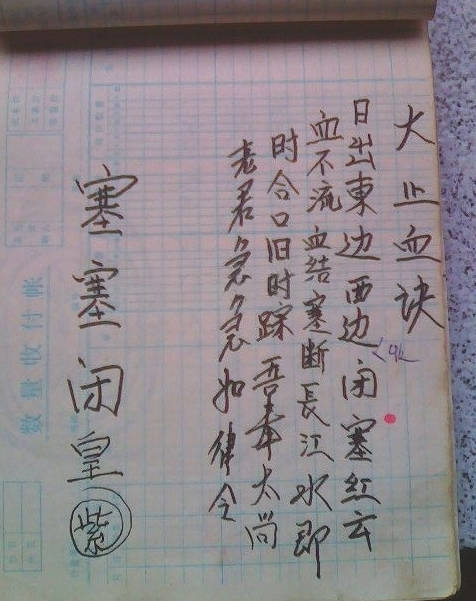 大止血诀
日出東边西边闭塞红云
血不流血结塞断長江水即
时合口旧时踪吾奉太尚
老君急急如律令
塞塞闭皇紫
数量收付帐